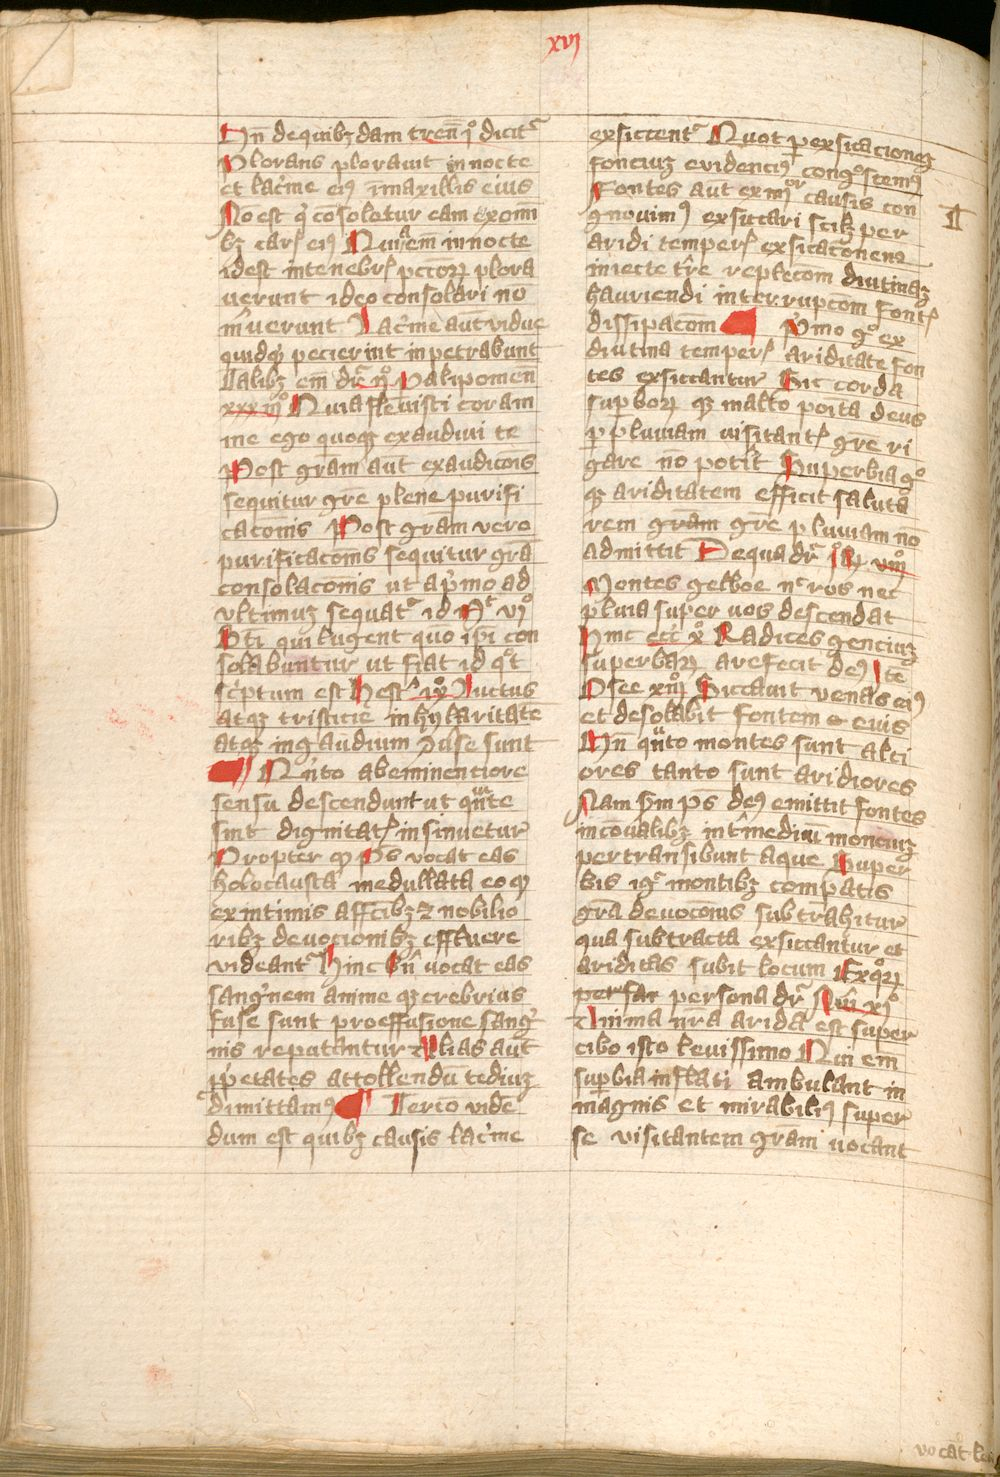 xvj
Vn̄ de quibȝdam tren̄ jº dicit᷑
Plorans plorauit in nocte
et lac̓me eiꝰ i maxillis eius
Nō est q̓ cōsoletur eam ex om̄i
bȝ caris eiꝰ Quia em̄ in nocte
idest in tenebrꝭ pccōꝝ plora
uerunt ideo consolari nō
m̓uerunt Lac̓me aūt vidue
quidqȝ pecierint inpetrabunt
Talibȝ em̄ dr̄ nº Palipomen̄
xxxiiijº Quia fleuisti coram
me ego quoqȝ exaudiui te
Post grām aūt exaudicōis
sequitur gr̄e plene purifi
cacōnis Post grām vero
purificacōnis sequitur grā
consolacōnis ut a p̓mo ad
vltimuȝ sequat᷑ id Mt vº
Bti qui lugent quo ip̄i con
solabuntur ut fiat id qºt
sc̓ptum est Hest᷑ ixº Luctus
atqȝ tristicie in hylaritate
atqȝ in gaudium v̓se sunt
Qn̓to ab eminenciore
sensu descendunt ut qn̄te
sint dignitatꝭ insinuetur
Propter qꝫ p̄s vocat eas
holocausta medullata eo qꝫ
ex intimis affcībȝ ⁊ nobilio
ribȝ deuocionibȝ effluere
videant᷑ Hinc Bn̄ vocat eas
sang̓nem anime qȝ crebrius
fuse sunt pro effusione sang̓
nis reputantur Alias aūt
p̓petates attollendū tediuȝ
dimittamꝰ Tercō viden̄
dum est quibȝ causis lac̓me
exsiccent᷑ Quot per exsicacioneȝ
fonciuȝ evidenciꝰ congºscemꝰ
Fontes aut ex iiijor causis con
gnouimꝰ exsiccari scilȝ per
aridi temperꝭ exsicacōnem
iniecte tr̄e replecōm diutinaȝ
hauriendi interrupcōm fontꝭ
dissipacōm P̓mo gº ex
diutina temperꝭ ariditate fon
tes exsiccantur Sic corda
suꝑborꝝ qȝ malto poīta deus
ꝑ pluuiam uisitantꝭ gr̄e ri
gare no potit Superbia gº
qȝ ariditatem efficit saluta
rem gram gr̄e pluuiam nō
admittit De qua dr̄
Montes gelboe nc̄ ros nec
pluia super uos descendat
Hinc ecc̄ xº Radices genciuȝ
superbaꝝ arefecit deꝰ Itē
Osee xiijº Siccauit venas eiꝰ
et desolabit fontem eius
Vn̄ qn̄to montes sunt alti
ores tanto sunt aridiores
Nam s̄m p̄s deꝰ emittit fontes
in cōualibȝ int̓mediū monciuȝ
pertransibunt aque Super
bis igr̄ montibȝ compatis
grā deuocōnis subtrahitur
qua subtracta exsiccantur et
ariditas subit locum Ex qºꝝ
persona dr̄ Nūi xjº
Anima nr̄a arida est super
cibo isto leuissimo Qui em̄
suꝑbia inflati ambulant in
magnis et mirabiliꝰ super
se visitantem grām uocant
vocat